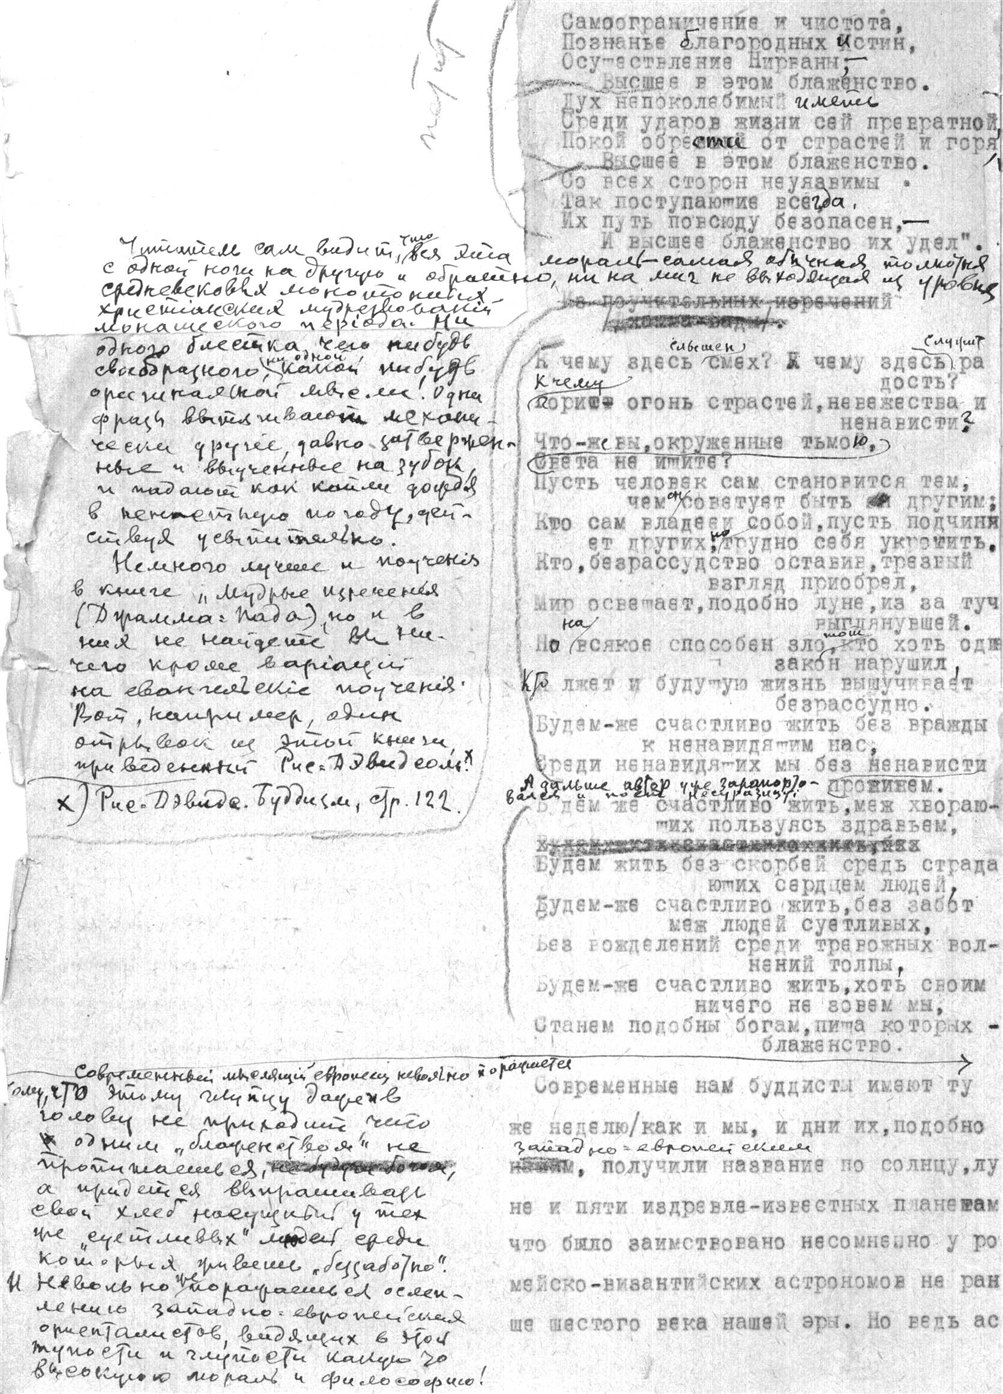 петит
Самоограничение и чистота,
Познанье благородных истин,
Осуществление Нирваны,—
Высшее в этом блаженство.
Дух непоколебимый иметь
Среди ударов жизни сей превратной,
Покой обрести от страстей и горя,
Высшее в этом блаженство.
Со всех сторон неуязвимы
Так поступающие всегда.
Их путь повсюду безопасен,—
И высшее блаженство их удел".
Читатель сам видит, что вся эта мораль самая обычная толкотня
с одной ноги на другую и обратно, ни на миг не выходящая из уровня
средневековых монотонных
христианских мудрствований
монашеского периода. Ни
одного блестка чего нибудь
своеобразного, ни одной какой нибудь
оригинальной мысли! Одни
фразы вытягивают механи-
чески другие, давно затвержен-
ные и выученные на зубок,
и падают как капли дождя
в ненастную погоду, дей-
ствуя усыпительно.
Немного лучше и поучения
в книге „Мудрые изречения
(Дхамма-Пада), но и в
них не найдете вы ни-
чего кроме варіаций
на евангельскіе поученія.
Вот, например, один
отрывок из этой книги,
приведенный Рис-Дэвидсом. х
х) Рис-Дэвидс. Буддизм, стр. 122.
Из поучительных изречений
/Дхамма-Пады/.
К чему здесь слышен смех? К чему здесь слушат ра
дость?
К чему
Горит огонь страстей, невежества и
ненависти?
Что-же вы, окруженные тьмою,
Света не ищите?
Пусть человек сам становится тем,
чем он советует быть другим;
Кто сам владеет собой, пусть подчини
ет других; но трудно себя укротить.
Кто, безрассудство оставив, трезвый
взгляд приобрел,
Мир освещает, подобно луне, из за туч
выглянувшей.
На всякое способен зло, тот кто хоть оди
закон нарушил,
Кто лжет и будущую жизнь вышучивает
безрассудно.
Будем-же счастливо жить без вражды
к ненавидящим нас,
Среди ненавидящих мы без ненависти
проживем.
А дальше автор уже зарапорто-
вался и понес несуразицу:
Будем же счастливо жить, меж хвораю-
щих пользуясь здравьем,
Будем жить без скорбей средь страда
ющих сердцем людей,
Будем-же счастливо жить, без забот
меж людей суетливых,
Без вожделений среди тревожных вол-
нений толпы,
Будем-же счастливо жить, хоть своим
ничего не зовем мы,
Станем подобны богам, пища которых -
блаженство.
Современный мыслящий европеец невольно поражается
тому, что этому глупцу даже в
голову не приходит что
одним „блаженством" не
пропитаешься,
а придется выпрашивать
свой хлеб насущный у тех
же „суетливых" людей среди
которых живешь „беззаботно".
И невольно же поражаешься ослеп-
лению западно-европейских
ориенталистов, видящих в этой
тупости и глупости какую то
высокую мораль и философию!
Современные нам буддисты имеют ту
же неделю/как и мы, и дни их, подобно
западно-европейским
нашим, получили название по солнцу, лу
не и пяти издревле-известных планетам
что было заимствовано несомненно у ро
мейско-византийских астрономов не ран
ше шестого века нашей эры. Но ведь ас